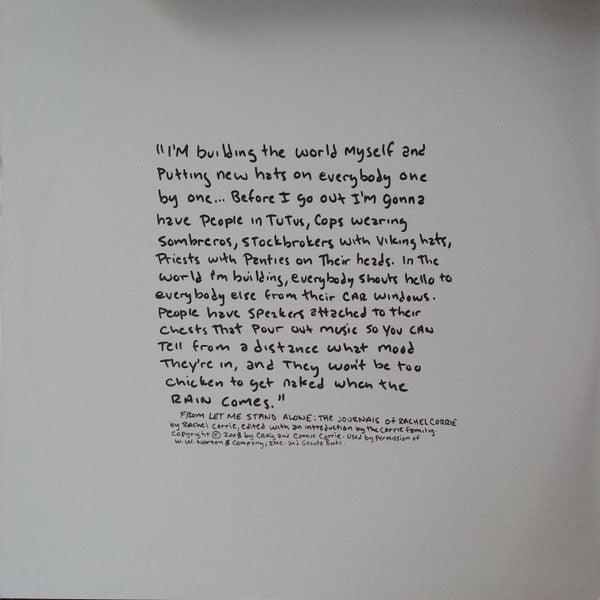 "I'M building the world Myself and
Putting new hats on everybody one
by one... Before I go out I'm gonna
have People in TuTus, Cops wearing
Sombreros, Stockbrokers with Viking hats,
Priests with Panties on Their heads. In The
World I'm building, everybody shouts hello to
everybody else from their CAR windows.
People have Speakers attached to their
Chests That Pour out music so You CAN
Tell from a distance what mood
They're in, and They won't be too
Chicken to get naked when the
RAIN Comes."
FROM LET ME STAND ALONE: THE JOURNALS OF RACHEL CORRIE
by Rachel Corrie, edited with an introduction by the Corrie family.
Copyright © 2008 by Craig and Connie Corrie. Used by Permission of
W. W. Norton & Company, Inc. and Granta Books.